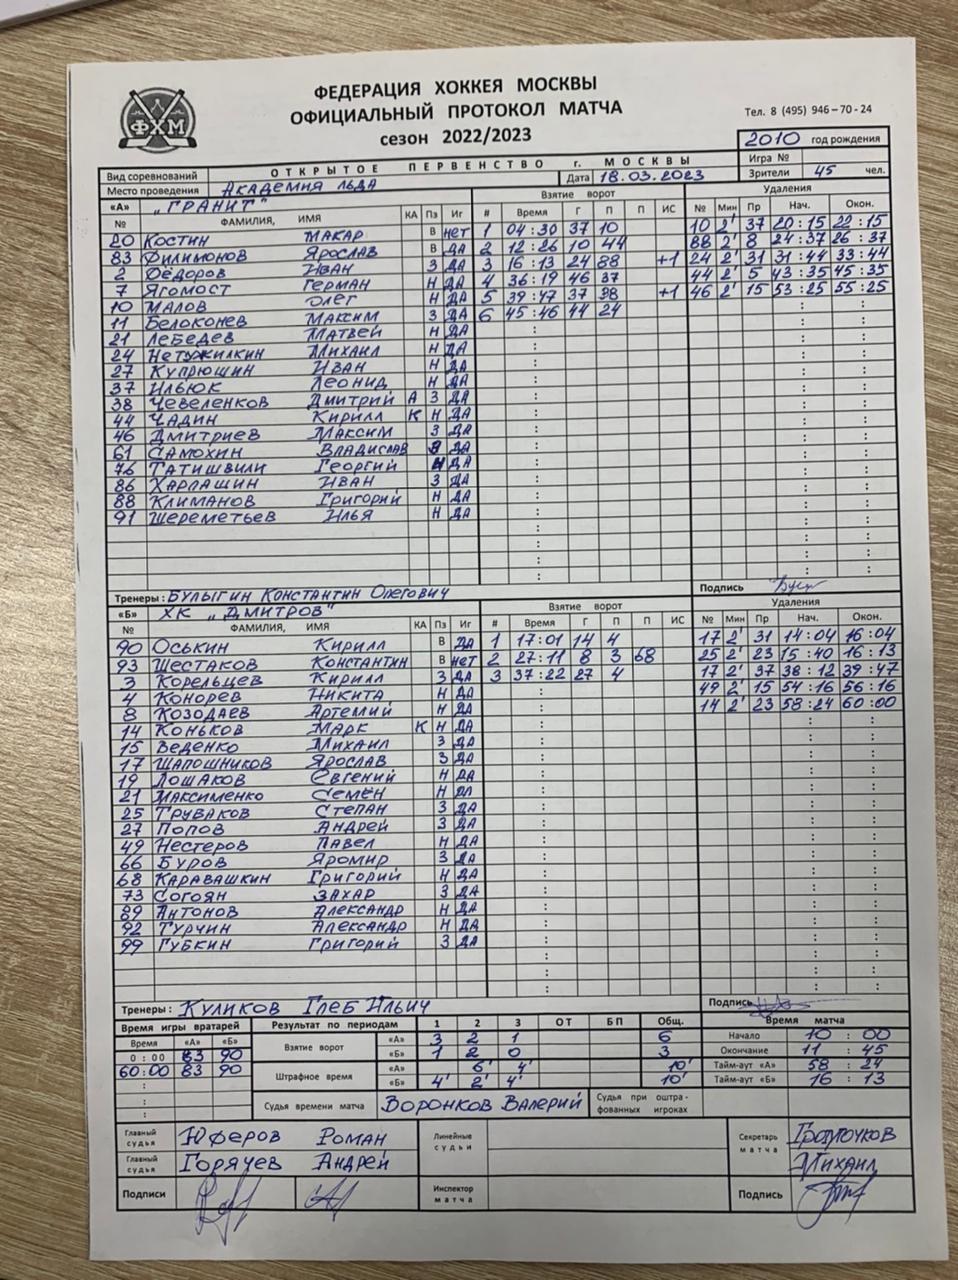 ФЕДЕРАЦИЯ ХОККЕЯ МОСКВЫ
ОФИЦИАЛЬНЫЙ ПРОТОКОЛ МАТЧА
сезон 2022/2023
ФХМ
Тел. 8 (495) 946-70-24
2010 год рождения
Вид соревнований ОТКРЫТОЕ ПЕРВЕНСТВО г. МОСКВЫ Игра №
Место проведения АКАДЕМИЯ ЛЬДА Дата 18.03.2023 Зрители 45 чел.
«А» "ГРАНИТ" Взятие ворот Удаления
№ ФАМИЛИЯ, ИМЯ КА Пз Иг # Время Г П П ИС № Мин Пр Нач. Окон.
20 КОСТИН МАКАР В НЕТ 1 04:30 37 10 10 2' 37 20:15 22:15
83 ФИЛИМОНОВ ЯРОСЛАВ В ДА 2 12:26 10 44 88 2' 8 24:37 26:37
2 ФЁДОРОВ ИВАН З ДА 3 16:13 24 88 +1 24 2' 31 31:44 33:44
7 ЯГОМОСТ ГЕРМАН Н ДА 4 36:19 46 37 44 2' 5 43:35 45:35
10 МАЛОВ ОЛЕГ Н ДА 5 39:47 37 38 +1 46 2' 15 53:25 55:25
11 БЕЛОКОНЕВ МАКСИМ З ДА 6 45:46 44 24
21 ЛЕБЕДЕВ МАТВЕЙ Н ДА
24 НЕТУЖИЛКИН МИХАИЛ Н ДА
27 КУПРЮШИН ИВАН Н ДА
37 ИЛЬЮК ЛЕОНИД Н ДА
38 ЧЕВЕЛЕНКОВ ДМИТРИЙ А З ДА
44 ЧАДИН КИРИЛЛ К Н ДА
46 ДМИТРИЕВ МАКСИМ З ДА
61 САМОХИН ВЛАДИСЛАВ З ДА
76 ТАТИШВИЛИ ГЕОРГИЙ Н ДА
86 ХАРЛАШИН ИВАН З ДА
88 КЛИМАНОВ ГРИГОРИЙ Н ДА
91 ШЕРЕМЕТЬЕВ ИЛЬЯ Н ДА
Тренеры: БУЛЫГИН КОНСТАНТИН ОЛЕГОВИЧ Подпись
«Б» ХК "ДМИТРОВ" Взятие ворот Удаления
№ ФАМИЛИЯ, ИМЯ КА Пз Иг # Время Г П П ИС № Мин Пр Нач. Окон.
90 ОСЬКИН КИРИЛЛ В ДА 1 17:01 14 4 17 2' 31 14:04 16:04
93 ШЕСТАКОВ КОНСТАНТИН В НЕТ 2 27:11 8 3 68 25 2' 23 15:40 16:13
3 КОРЕЛЬЦЕВ КИРИЛЛ З ДА 3 37:22 27 4 17 2' 37 38:12 39:47
4 КОНОРЕВ НИКИТА Н ДА 49 2' 15 54:16 56:16
8 КОЗОДАЕВ АРТЕМИЙ Н ДА 14 2' 23 58:24 60:00
14 КОНЬКОВ МАРК К Н ДА
15 ВЕДЕНКО МИХАИЛ З ДА
17 ШАПОШНИКОВ ЯРОСЛАВ З ДА
19 ЛОШАКОВ ЕВГЕНИЙ Н ДА
21 МАКСИМЕНКО СЕМЁН Н ДА
25 ТРУВАКОВ СТЕПАН З ДА
27 ПОПОВ АНДРЕЙ З ДА
49 НЕСТЕРОВ ПАВЕЛ Н ДА
66 БУРОВ ЯРОМИР З ДА
68 КАРАВАШКИН ГРИГОРИЙ Н ДА
73 СОГОЯН ЗАХАР З ДА
89 АНТОНОВ АЛЕКСАНДР Н ДА
92 ТУРЧИН АЛЕКСАНДР Н ДА
99 ГУБКИН ГРИГОРИЙ З ДА
Тренеры: КУЛИКОВ ГЛЕБ ИЛЬИЧ Подпись
Время игры вратарей Результат по периодам 1 2 3 ОТ БП Общ. Время матча
Время «А» «Б» Взятие ворот «А» 3 2 1 6 Начало 10:00
0:00 83 90 «Б» 1 2 0 3 Окончание 11:45
60:00 83 90 Штрафное время «А» 6' 4' 10' Тайм-аут «А» 58:24
«Б» 4' 2' 4' 10' Тайм-аут «Б» 16:13
Судья времени матча ВОРОНКОВ ВАЛЕРИЙ Судья при оштра-
фованных игроках
Главный судья ЮФЕРОВ РОМАН Линейные судьи Секретарь матча
Главный судья ГОРЯЧЕВ АНДРЕЙ МИХАИЛ
Подписи Инспектор матча Подпись